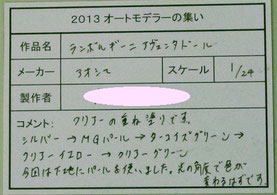 2013オートモデラーの集い
作品名 ランボルギーニ アヴェンタドール
メーカー アオシマ スケール 1/24
製作者
コメント： クリアーの重ね塗りです。
シルバー → MGパール → ターコイズグリーン →
クリアーイエロー → クリアーグリーン
今回は下地にパールを使いました。光の角度で色が
変わるはずです